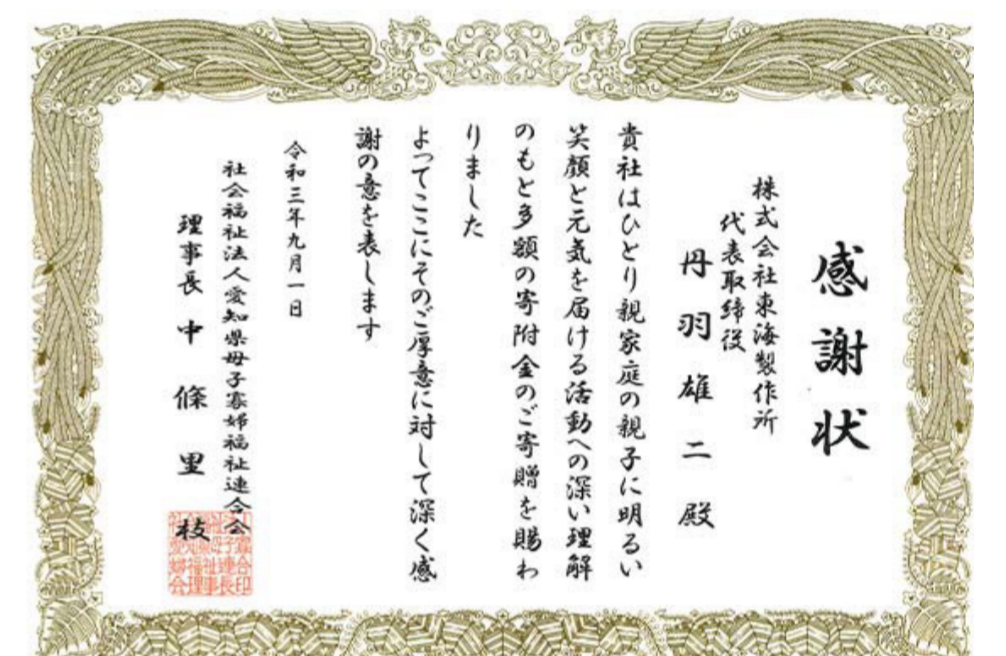 感謝状
株式会社東海製作所
代表取締役
丹羽雄二殿
貴社はひとり親家庭の親子に明るい
笑顔と元気を届ける活動への深い理解
のもと多額の寄附金のご寄贈を賜わ
りました
よってここにそのご厚意に対して深く感
謝の意を表します
令和三年九月一日
社会福祉法人愛知県母子寡婦福祉連合会
理事長中條里枝